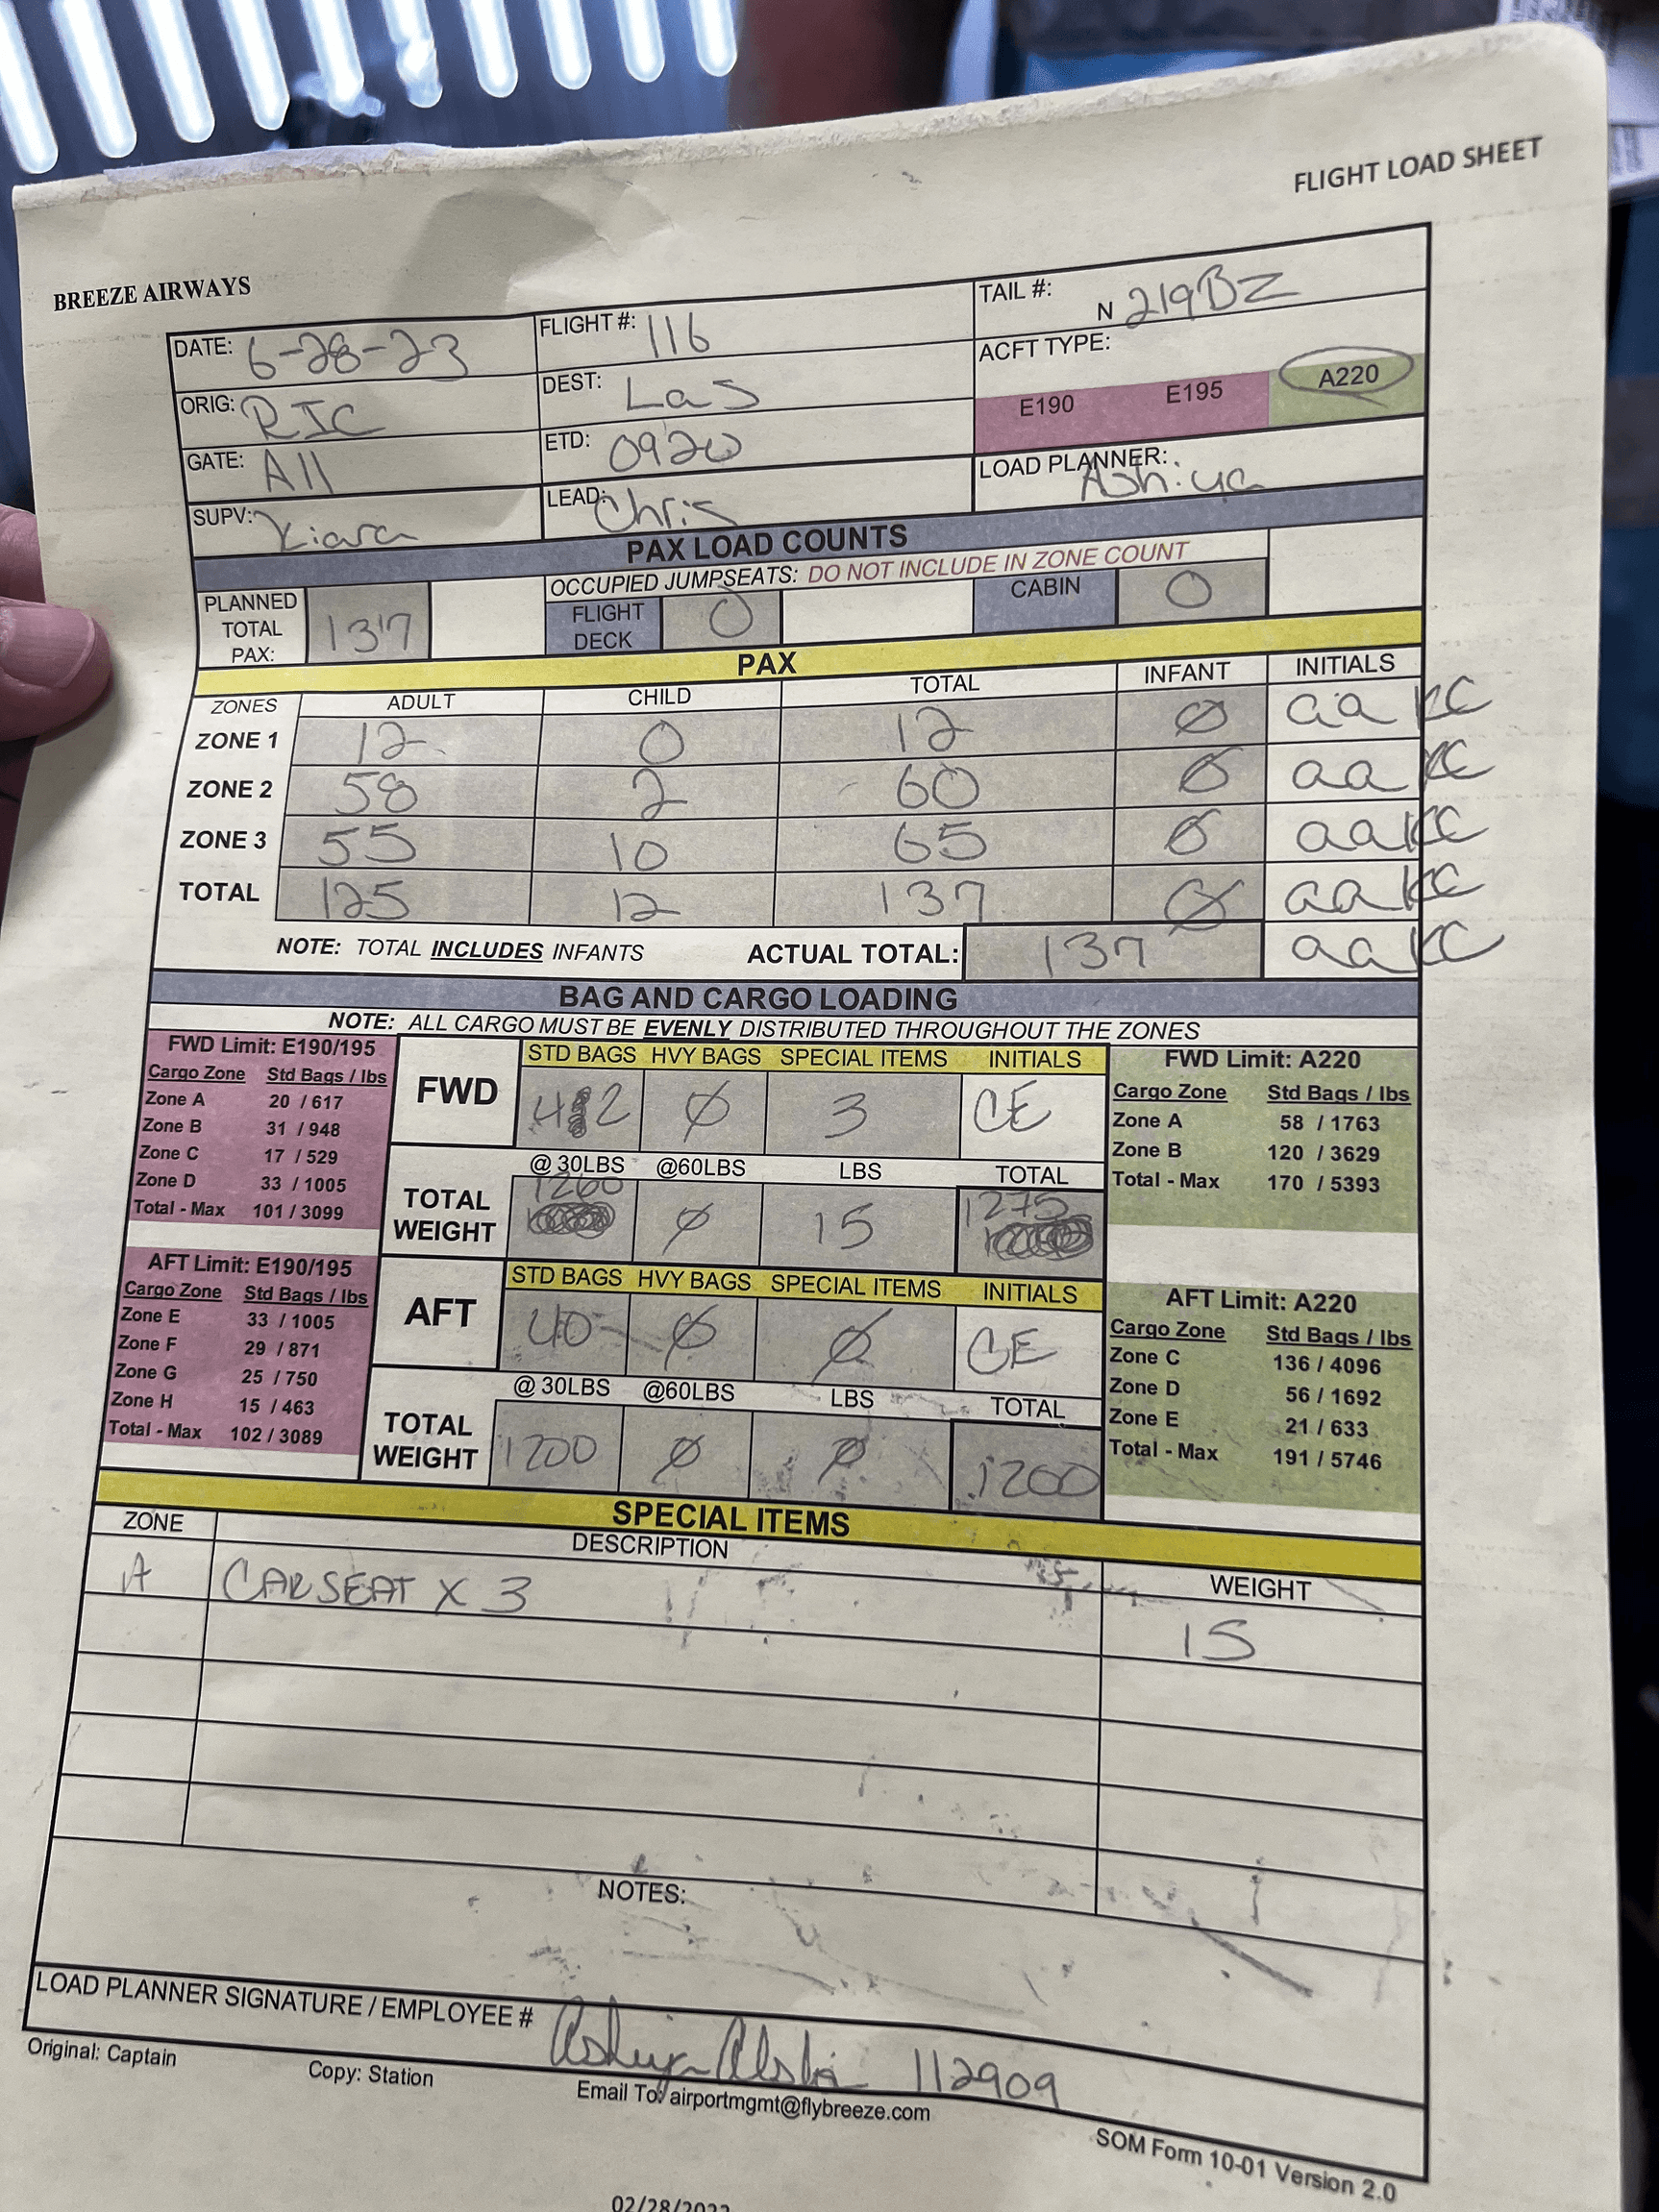 FLIGHT LOAD SHEET
BREEZE AIRWAYS
DATE: 6-28-23 FLIGHT #: 116 TAIL #: N 219BZ
ORIG: RIC DEST: Las ACFT TYPE: E190 E195 A220
GATE: A11 ETD: 0920 LOAD PLANNER: Ashiya
SUPV: Kiara LEAD: Chris
PAX LOAD COUNTS
OCCUPIED JUMPSEATS: DO NOT INCLUDE IN ZONE COUNT
PLANNED TOTAL PAX: 137 FLIGHT DECK 0 CABIN 0
PAX
ZONES ADULT CHILD TOTAL INFANT INITIALS
ZONE 1 12 0 12 Ø aa KC
ZONE 2 58 2 60 Ø aa KC
ZONE 3 55 10 65 Ø aa KC
TOTAL 125 12 137 Ø aa KC
NOTE: TOTAL INCLUDES INFANTS ACTUAL TOTAL: 137 aa KC
BAG AND CARGO LOADING
NOTE: ALL CARGO MUST BE EVENLY DISTRIBUTED THROUGHOUT THE ZONES
FWD Limit: E190/195
Cargo Zone Std Bags / lbs
Zone A 20 / 617
Zone B 31 / 948
Zone C 17 / 529
Zone D 33 / 1005
Total - Max 101 / 3099
FWD
STD BAGS HVY BAGS SPECIAL ITEMS INITIALS
42 Ø 3 CE
@ 30LBS @60LBS LBS TOTAL
TOTAL WEIGHT 1260 Ø 15 1275
FWD Limit: A220
Cargo Zone Std Bags / lbs
Zone A 58 / 1763
Zone B 120 / 3629
Total - Max 170 / 5393
AFT Limit: E190/195
Cargo Zone Std Bags / lbs
Zone E 33 / 1005
Zone F 29 / 871
Zone G 25 / 750
Zone H 15 / 463
Total - Max 102 / 3089
AFT
STD BAGS HVY BAGS SPECIAL ITEMS INITIALS
40 Ø Ø CE
@ 30LBS @60LBS LBS TOTAL
TOTAL WEIGHT 1200 Ø Ø 1200
AFT Limit: A220
Cargo Zone Std Bags / lbs
Zone C 136 / 4096
Zone D 56 / 1692
Zone E 21 / 633
Total - Max 191 / 5746
SPECIAL ITEMS
ZONE DESCRIPTION WEIGHT
A CARSEAT X 3 15
NOTES:
LOAD PLANNER SIGNATURE / EMPLOYEE # Ashiya 112909
Original: Captain Copy: Station Email To: airportmgmt@flybreeze.com
SOM Form 10-01 Version 2.0